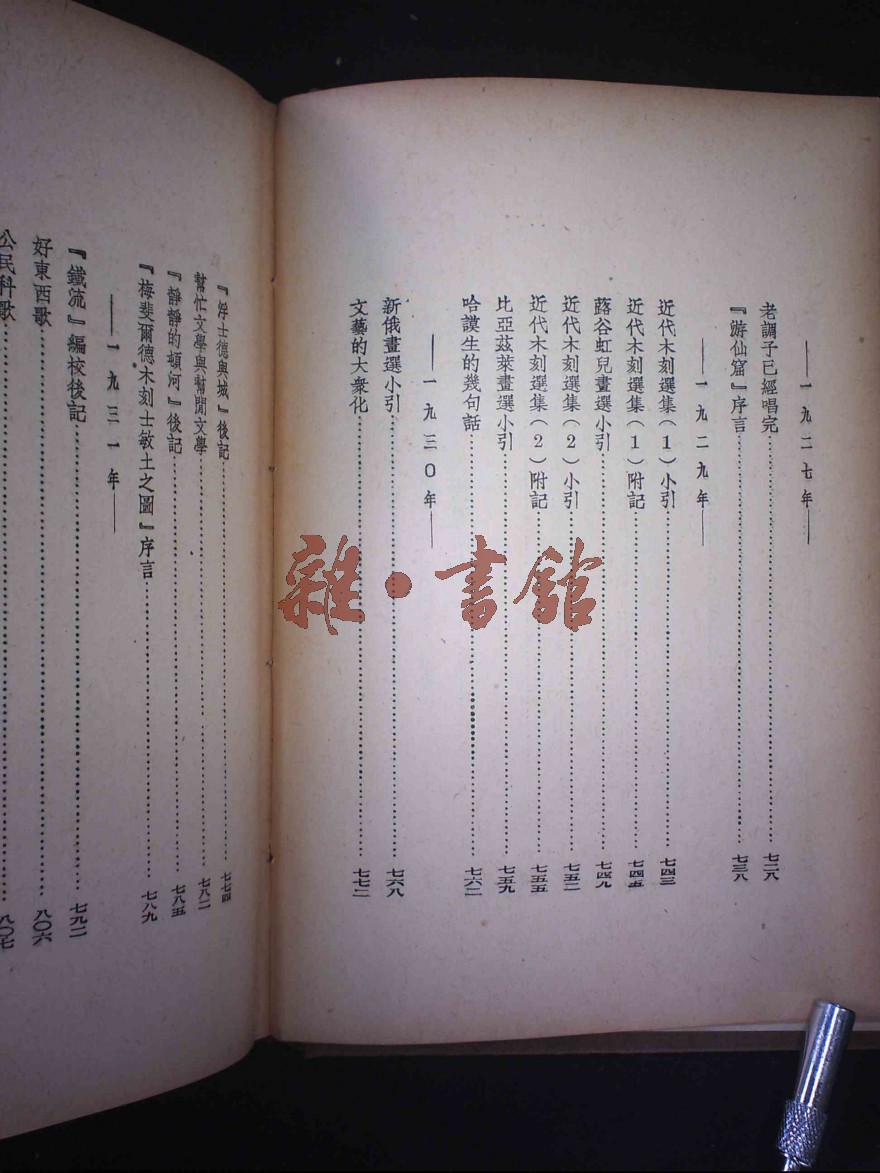 ——一九二七年——
老調子已經唱完……七二八
『游仙窟』序言……七三八
——一九二九年——
近代木刻選集(1)小引……七四三
近代木刻選集(1)附記……七四五
蕗谷虹兒畫選小引……七四九
近代木刻選集(2)小引……七五二
近代木刻選集(2)附記……七五五
比亞茲萊畫選小引……七五九
哈謨生的幾句話……七六二
——一九三〇年——
新俄畫選小引……七六八
文藝的大衆化……七七二
『浮士德與城』後記……七七四
幫忙文學與幫閒文學……七八二
『靜靜的頓河』後記……七八五
『梅斐爾德木刻士敏土之圖』序言……七八九
——一九三一年——
『鐵流』編校後記……七九二
好東西歌……八〇六
公民科歌……八〇七
雜·書館